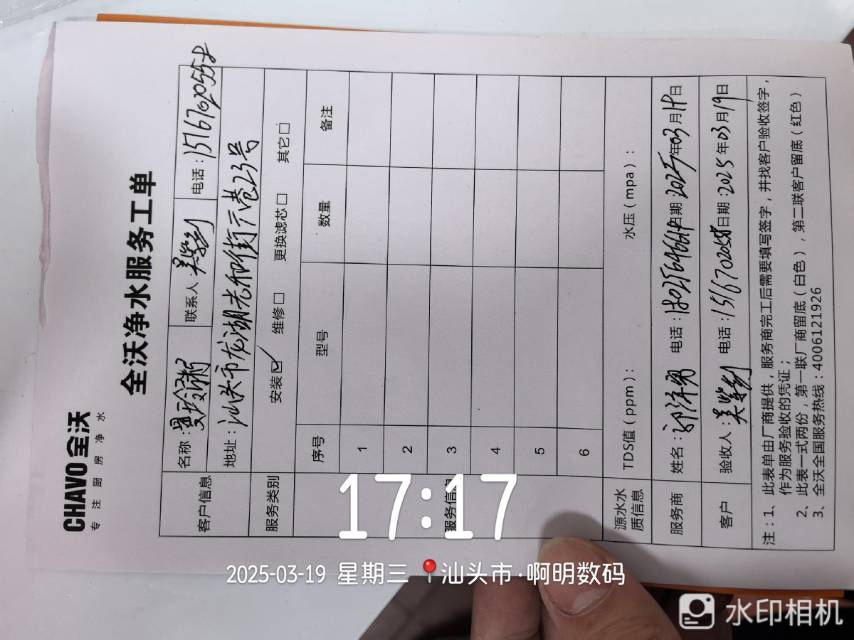 CHAVO全沃
专注厨房净水
全沃净水服务工单
客户信息
名称：
联系人：
电话：
地址：汕头市龙湖 和街六巷23号
服务类别
安装☑ 维修□ 更换滤芯□ 其它□
服务信
序号 型号 数量 备注
1
2
3
4
5
6
源水水质信息
TDS值（ppm）： 水压（mpa）：
服务商 姓名： 电话： 日期：2025年03月19日
客户 验收人： 电话： 日期：2025年03月19日
注：1、此表单由厂商提供，服务商完工后需要填写签字，并找客户验收签字，
作为服务验收的凭证；
2、此表一式两份，第一联厂商留底（白色），第二联客户留底（红色）
3、全沃全国服务热线：4006121926
17:17
2025-03-19 星期三 汕头市·啊明数码
水印相机